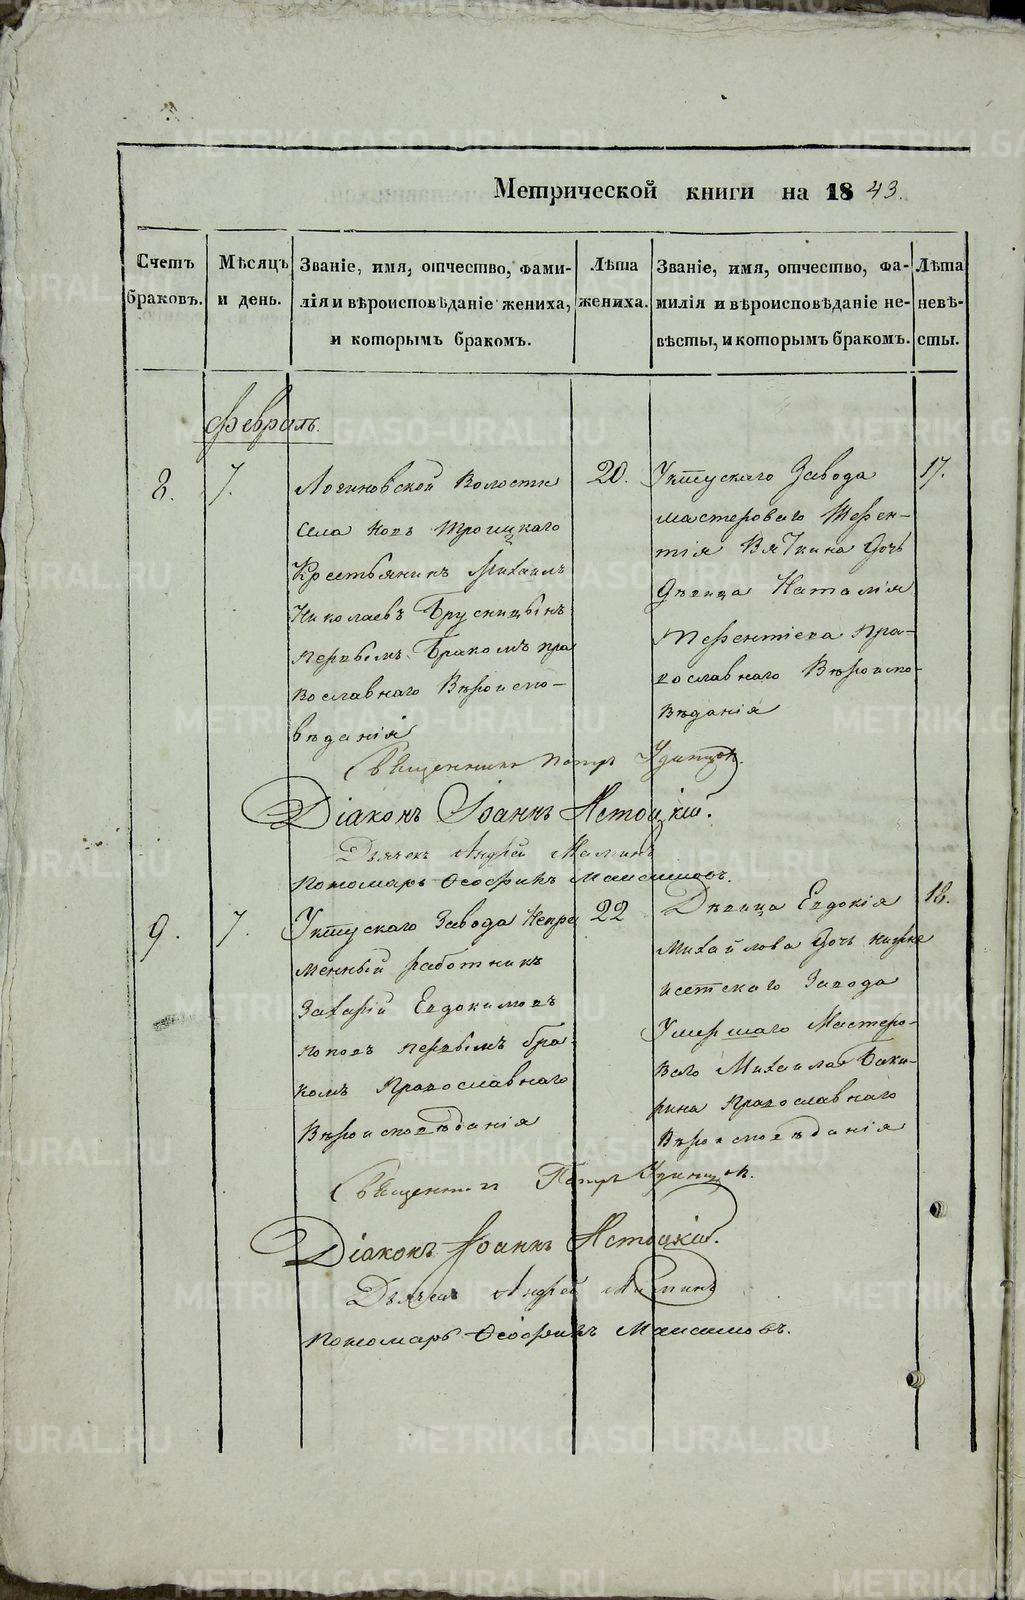 Метрической книги на 1843.
Счетъ браковъ.
Мѣсяцъ и день.
Званіе, имя, отчество, фами-
лія и вѣроисповѣданіе жениха,
и которымъ бракомъ.
Лѣта
жениха.
Званіе, имя, отчество, фа-
милія и вѣроисповѣданіе не-
вѣсты, и которымъ бракомъ.
Лѣта
невѣ-
сты.
Февраль.
8.
7.
Логиновской Волости
села Ново Троицкаго
Крестьянинъ Михаилъ
Николаевъ Брусницынъ
первымъ Бракомъ пра
вославнаго Вѣроиспо-
вѣданія
20.
Уктускаго Завода
мастероваго Терен-
тія Вяткина дочь
дѣвица Наталія
Терентіева пра-
вославнаго Вѣроиспо-
вѣданія
17.
Священникъ Петръ Удинцов.
Діаконъ Іоаннъ Истоцкій.
Дьячек Андрей Мамин
Пономарь Ѳеофанъ Максимовъ.
9.
7.
Уктускаго Завода Непре
менный работникъ
Захарій Евдокимовъ
Поповъ первымъ бра-
комъ Православнаго
Вѣроисповѣданія
22
Дѣвица Евдокія
Михайлова дочь нижне
исетскаго Завода
Умершаго Мастеро-
ваго Михаила Баки-
рина Православнаго
Вѣроисповѣданія
18.
Священник Петръ Удинцов.
Діаконъ Іоаннъ Истоцкій.
Дьячекъ Андрей Маминъ
Пономарь Ѳеофанъ Максимовъ.
METRIKI.GASO-URAL.RU